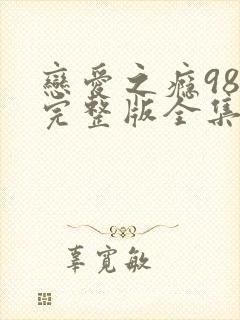 戀愛之癮98
完整版全集
辜寬敏